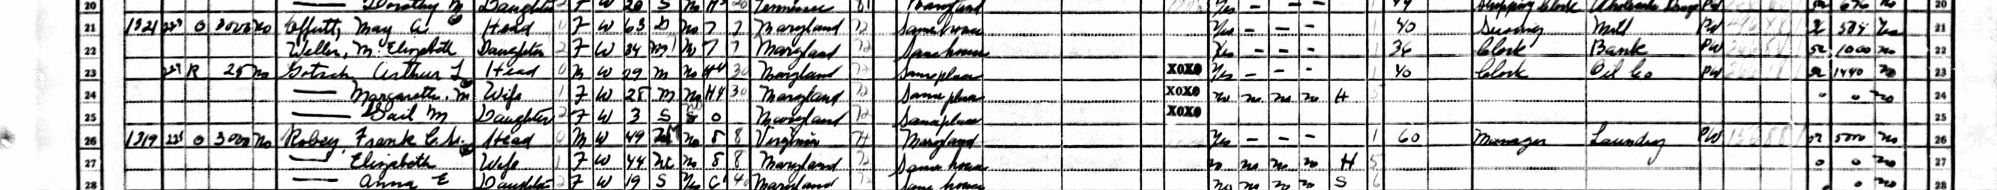 20 Dorothy M Daughter 2 F W 20 S No Tennessee Maryland Yes - - - 44 Shipping Clerk Wholesale Drugs PW 52 676 no 20
21 1321 O 3000 no Offutt, May A Head 0 F W 63 D No 7 7 Maryland Same house Yes - - - 1 40 Sewing Mill PW 584 Yes 21
22 Zeller, M. Elizabeth Daughter 2 F W 34 M No 7 7 Maryland Same house Yes - - - 1 36 Clerk Bank PW 52 1000 no 22
23 R 25 no Gotsch, Arthur L Head 0 M W 29 M No H4 30 Maryland Same place X0X0 Yes - - - 1 40 Clerk Oil Co PW 52 1440 no 23
24 — Margarette M Wife 1 F W 28 M No H4 30 Maryland Same place X0X0 no no no no H 5 0 0 no 24
25 — Gail M Daughter 2 F W 3 S 0 Maryland Same place X0X0 25
26 1319 O 3000 no Robey, Frank C. Sr. Head 0 M W 49 M No 8 8 Virginia Maryland Yes - - - 1 60 Manager Laundry PW 52 5000 no 26
27 — Elizabeth Wife 1 F W 44 M no 8 8 Maryland Same house no no no no H 5 0 0 no 27
28 — Anna E Daughter 2 F W 19 S Yes C1 Maryland Same house no no no no S 6 0 0 no 28